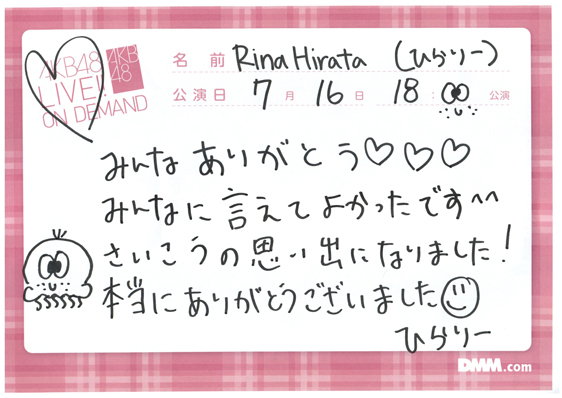 AKB48
LIVE!!
ON DEMAND
AKB
48
名 前 Rina Hirata (ひらりー)
公演日 7 月 16 日 18 : 公演
みんな ありがとう♡♡♡
みんなに 言えて よかったです^^
さいこうの 思い出になりました!
本当に ありがとうございました
ひらりー
DMM.com